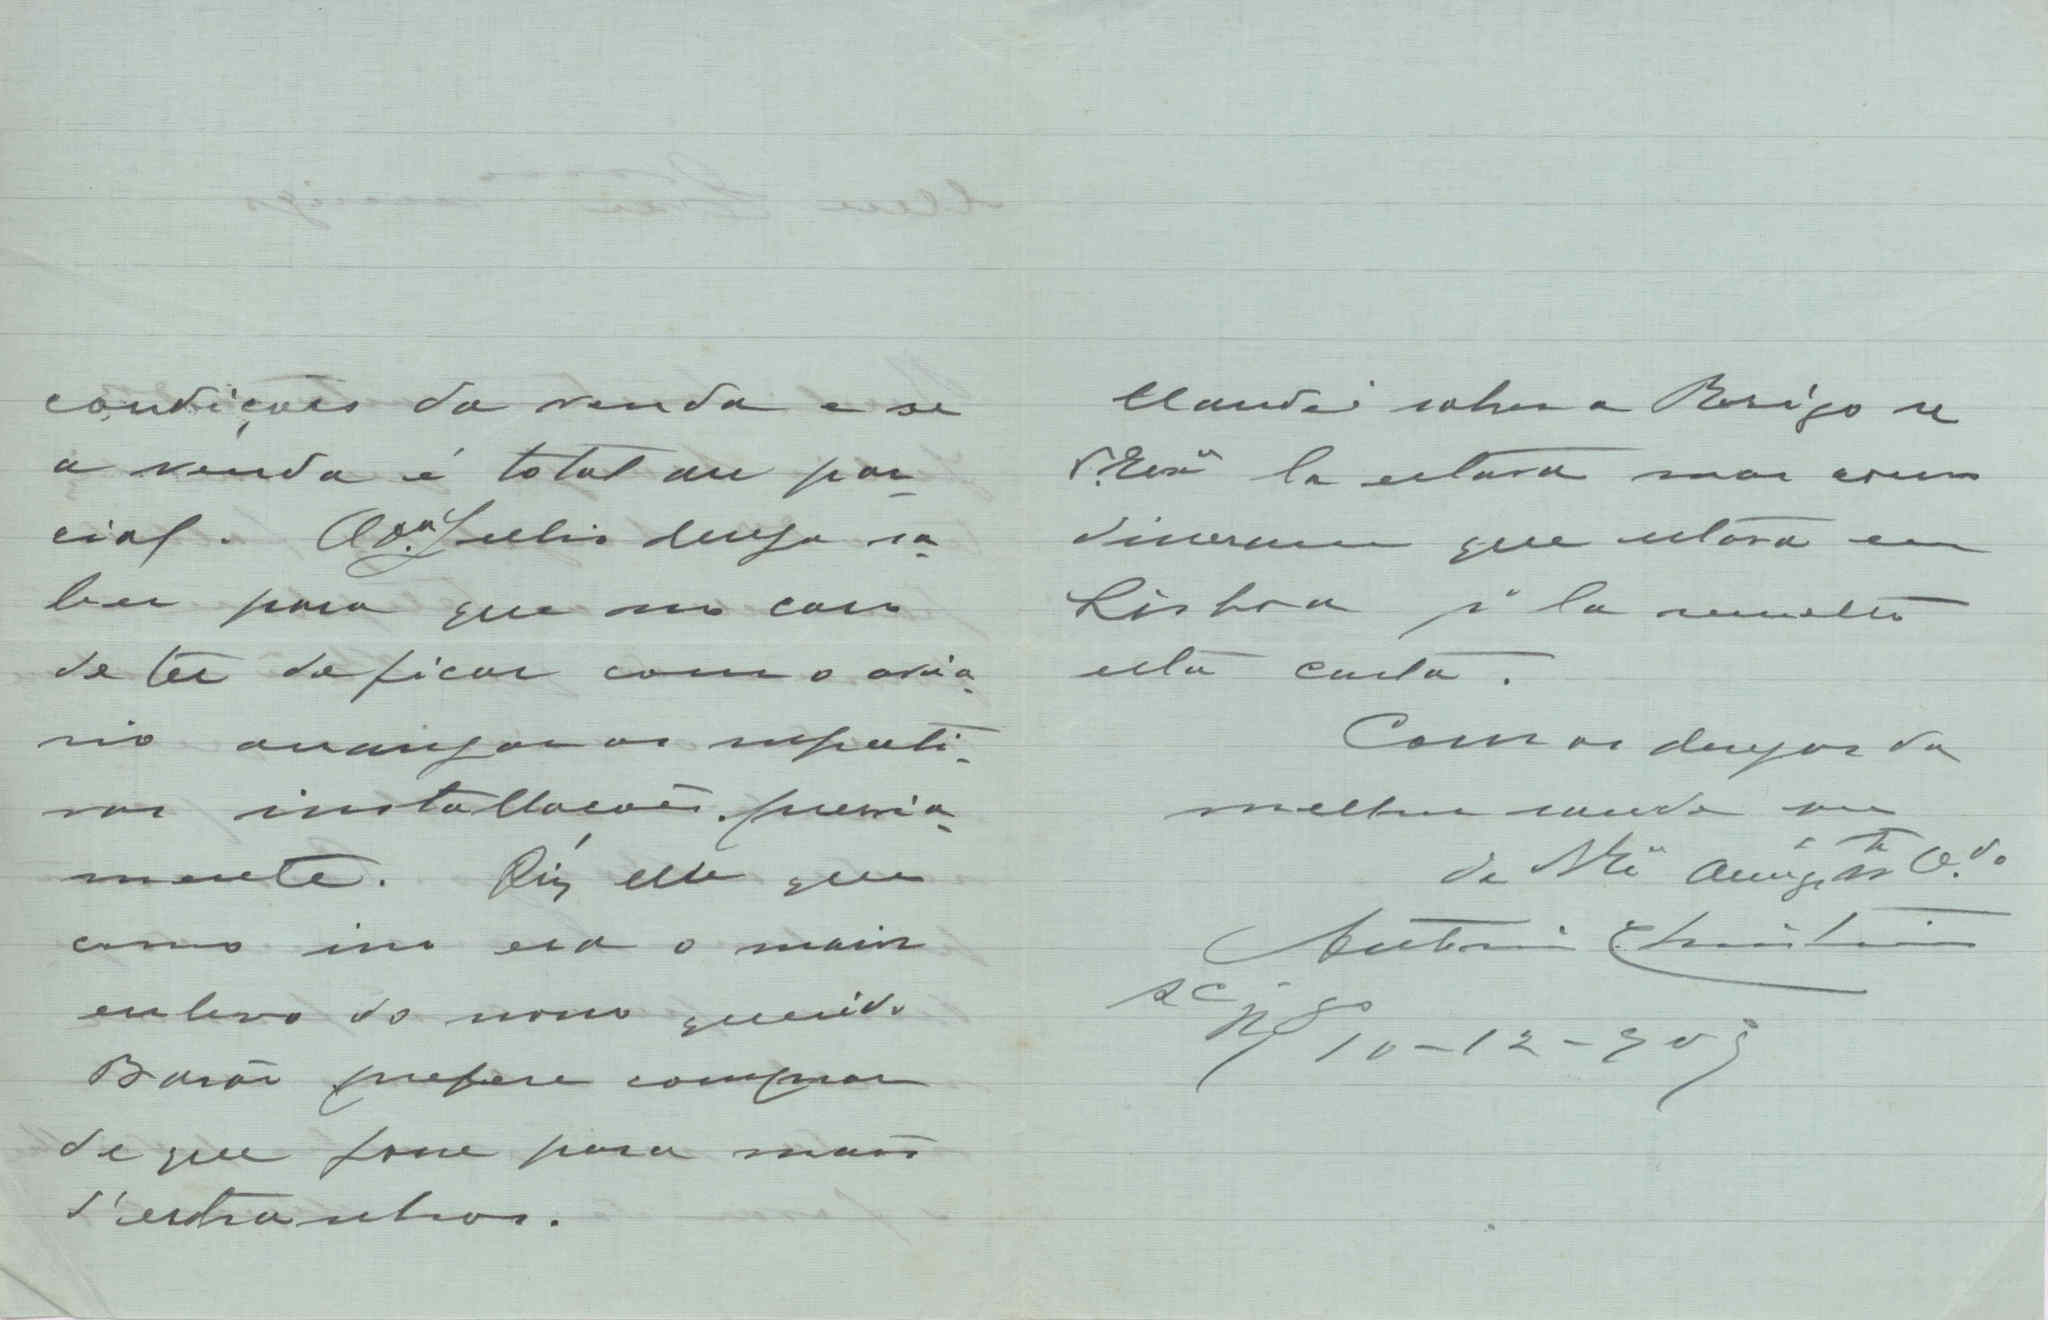 condições da venda e se
a venda é total ou par-
cial. O Snr. Julio deseja sa-
ber para que no caso
de ter de ficar com o avia-
rio arranjar as respecti-
vas installacões previa-
mente. Diz elle que
como isso era o maior
enlevo do nosso querido
Barão prefere comprar
de que fosse para mãos
d'extranhos.
Mandei saber a Perigo se
V. Exa la estava mas como
disseram que estava em
Lisboa p'la remetto
esta carta.
Com os desejos da
melhor saude sou
de V. Exa Amigo Obdo
Antonio Christino
S C
10-12-905